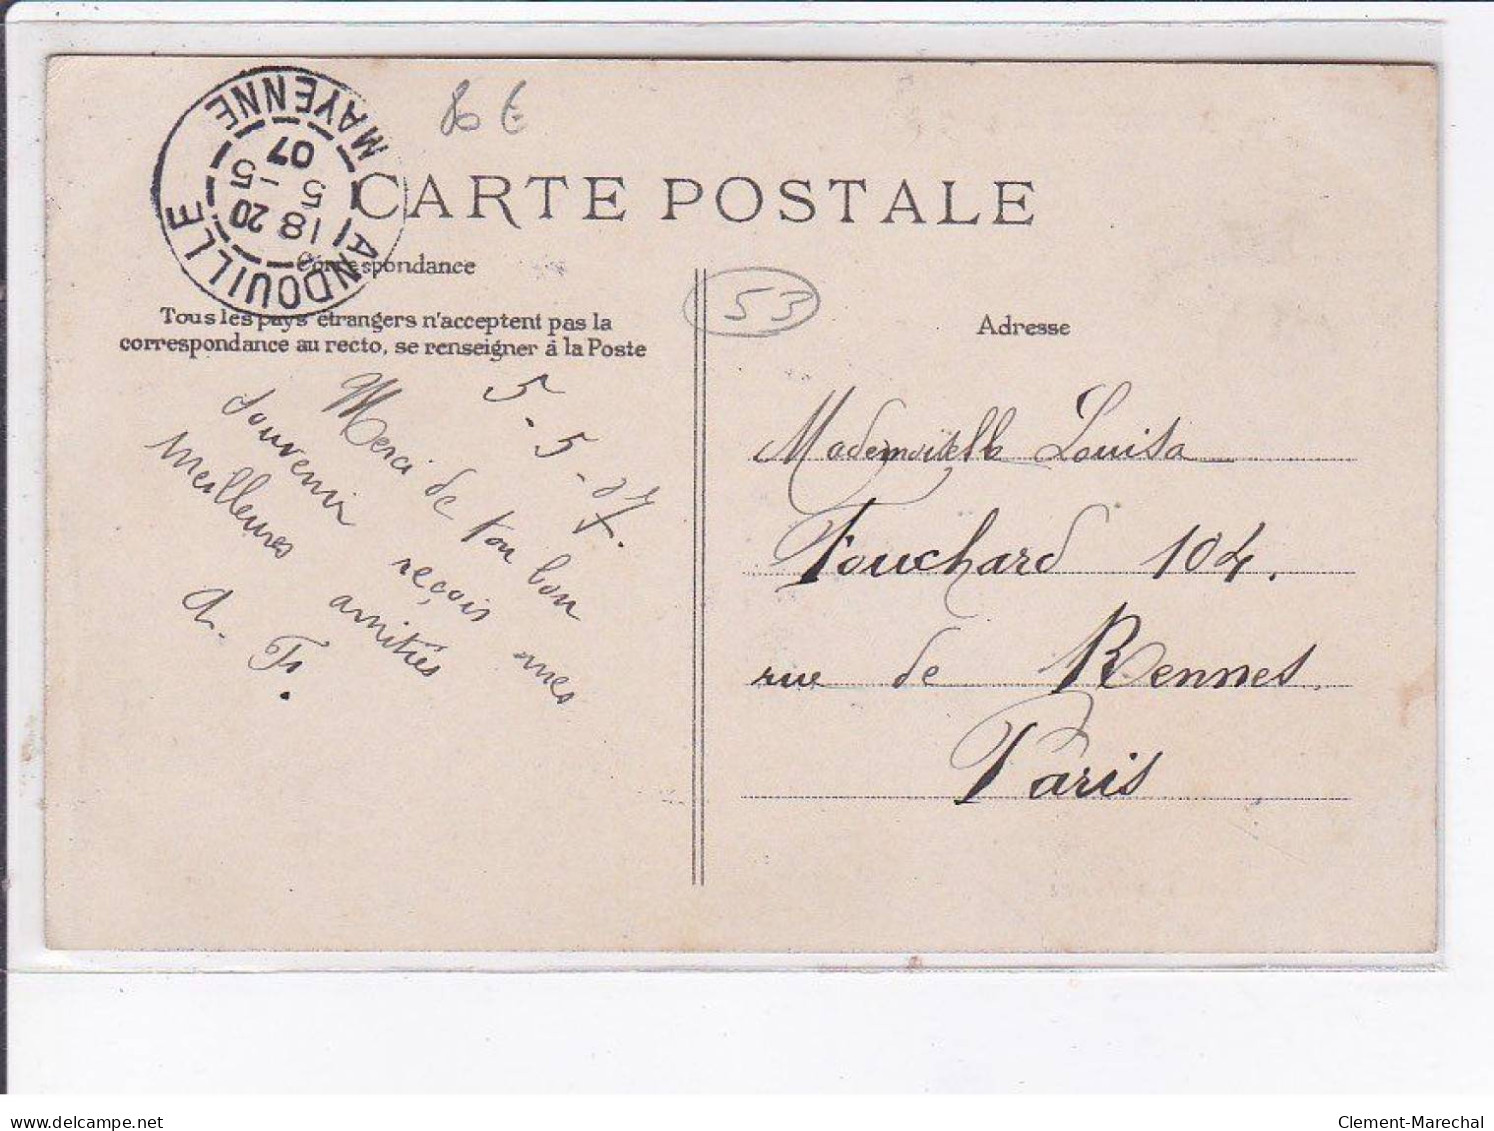 ANDOUILLE
MAYENNE
18 20
5 - 5
07
€
CARTE POSTALE
Correspondance
Tous les pays étrangers n'acceptent pas la
correspondance au recto, se renseigner à la Poste
53
Adresse
5-5-07.
Merci de ton bon
souvenir reçois mes
meilleures amitiés
A. F.
Mademoiselle Louisa
Fouchard 104.
rue de Rennes.
Paris
delcampe.net
Clement-Marechal